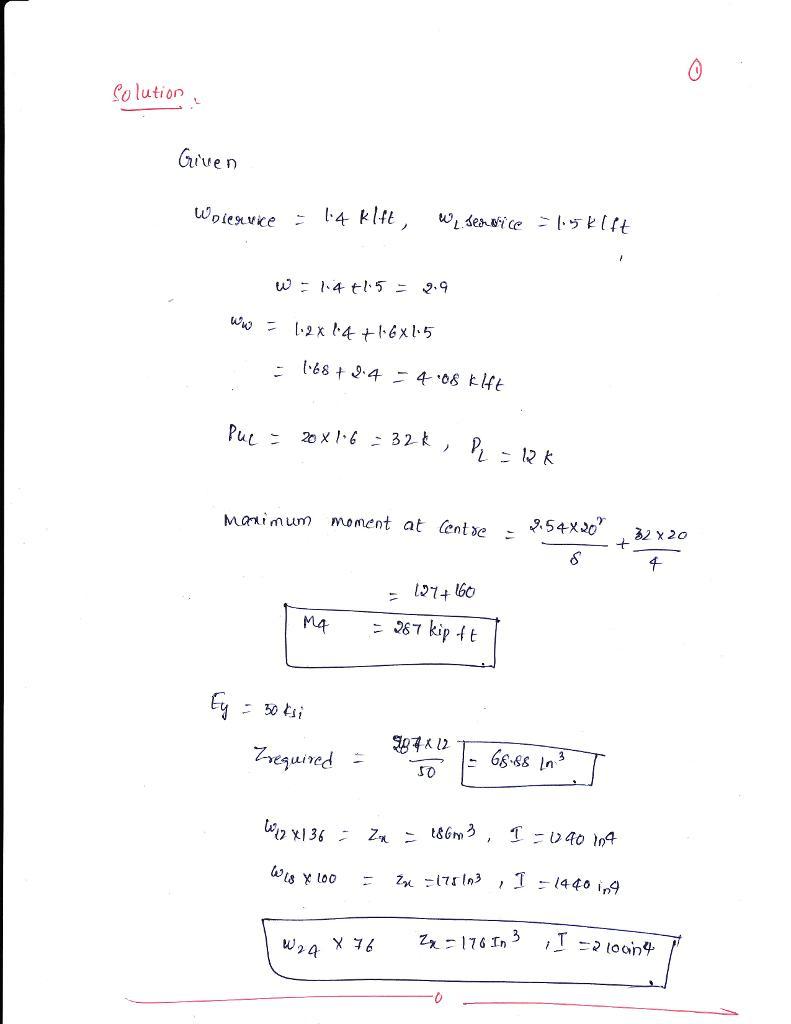 ①
Solution :
Given
WDservice = 1.4 k/ft, WL service = 1.5 k/ft
w = 1.4 + 1.5 = 2.9
= 1.2 x 1.4 + 1.6 x 1.5
= 1.68 + 2.4 = 4.08 k/ft
PuL = 20 x 1.6 = 32 k, PL = 12 k
Maximum moment at Centre = 2.54 x 20² / 8 + 32 x 20 / 4
= 127 + 160
M4 = 287 kip ft
= 50 ksi
Zrequired = 287 x 12 / 50 = 68.88 in³
W12 x 136 = Zx = 186 in³, I = 1240 in4
W18 x 100 = Zx = 175 in3, I = 1440 in4
W24 x 76 Zx = 176 In³, I = 2100 in4
0